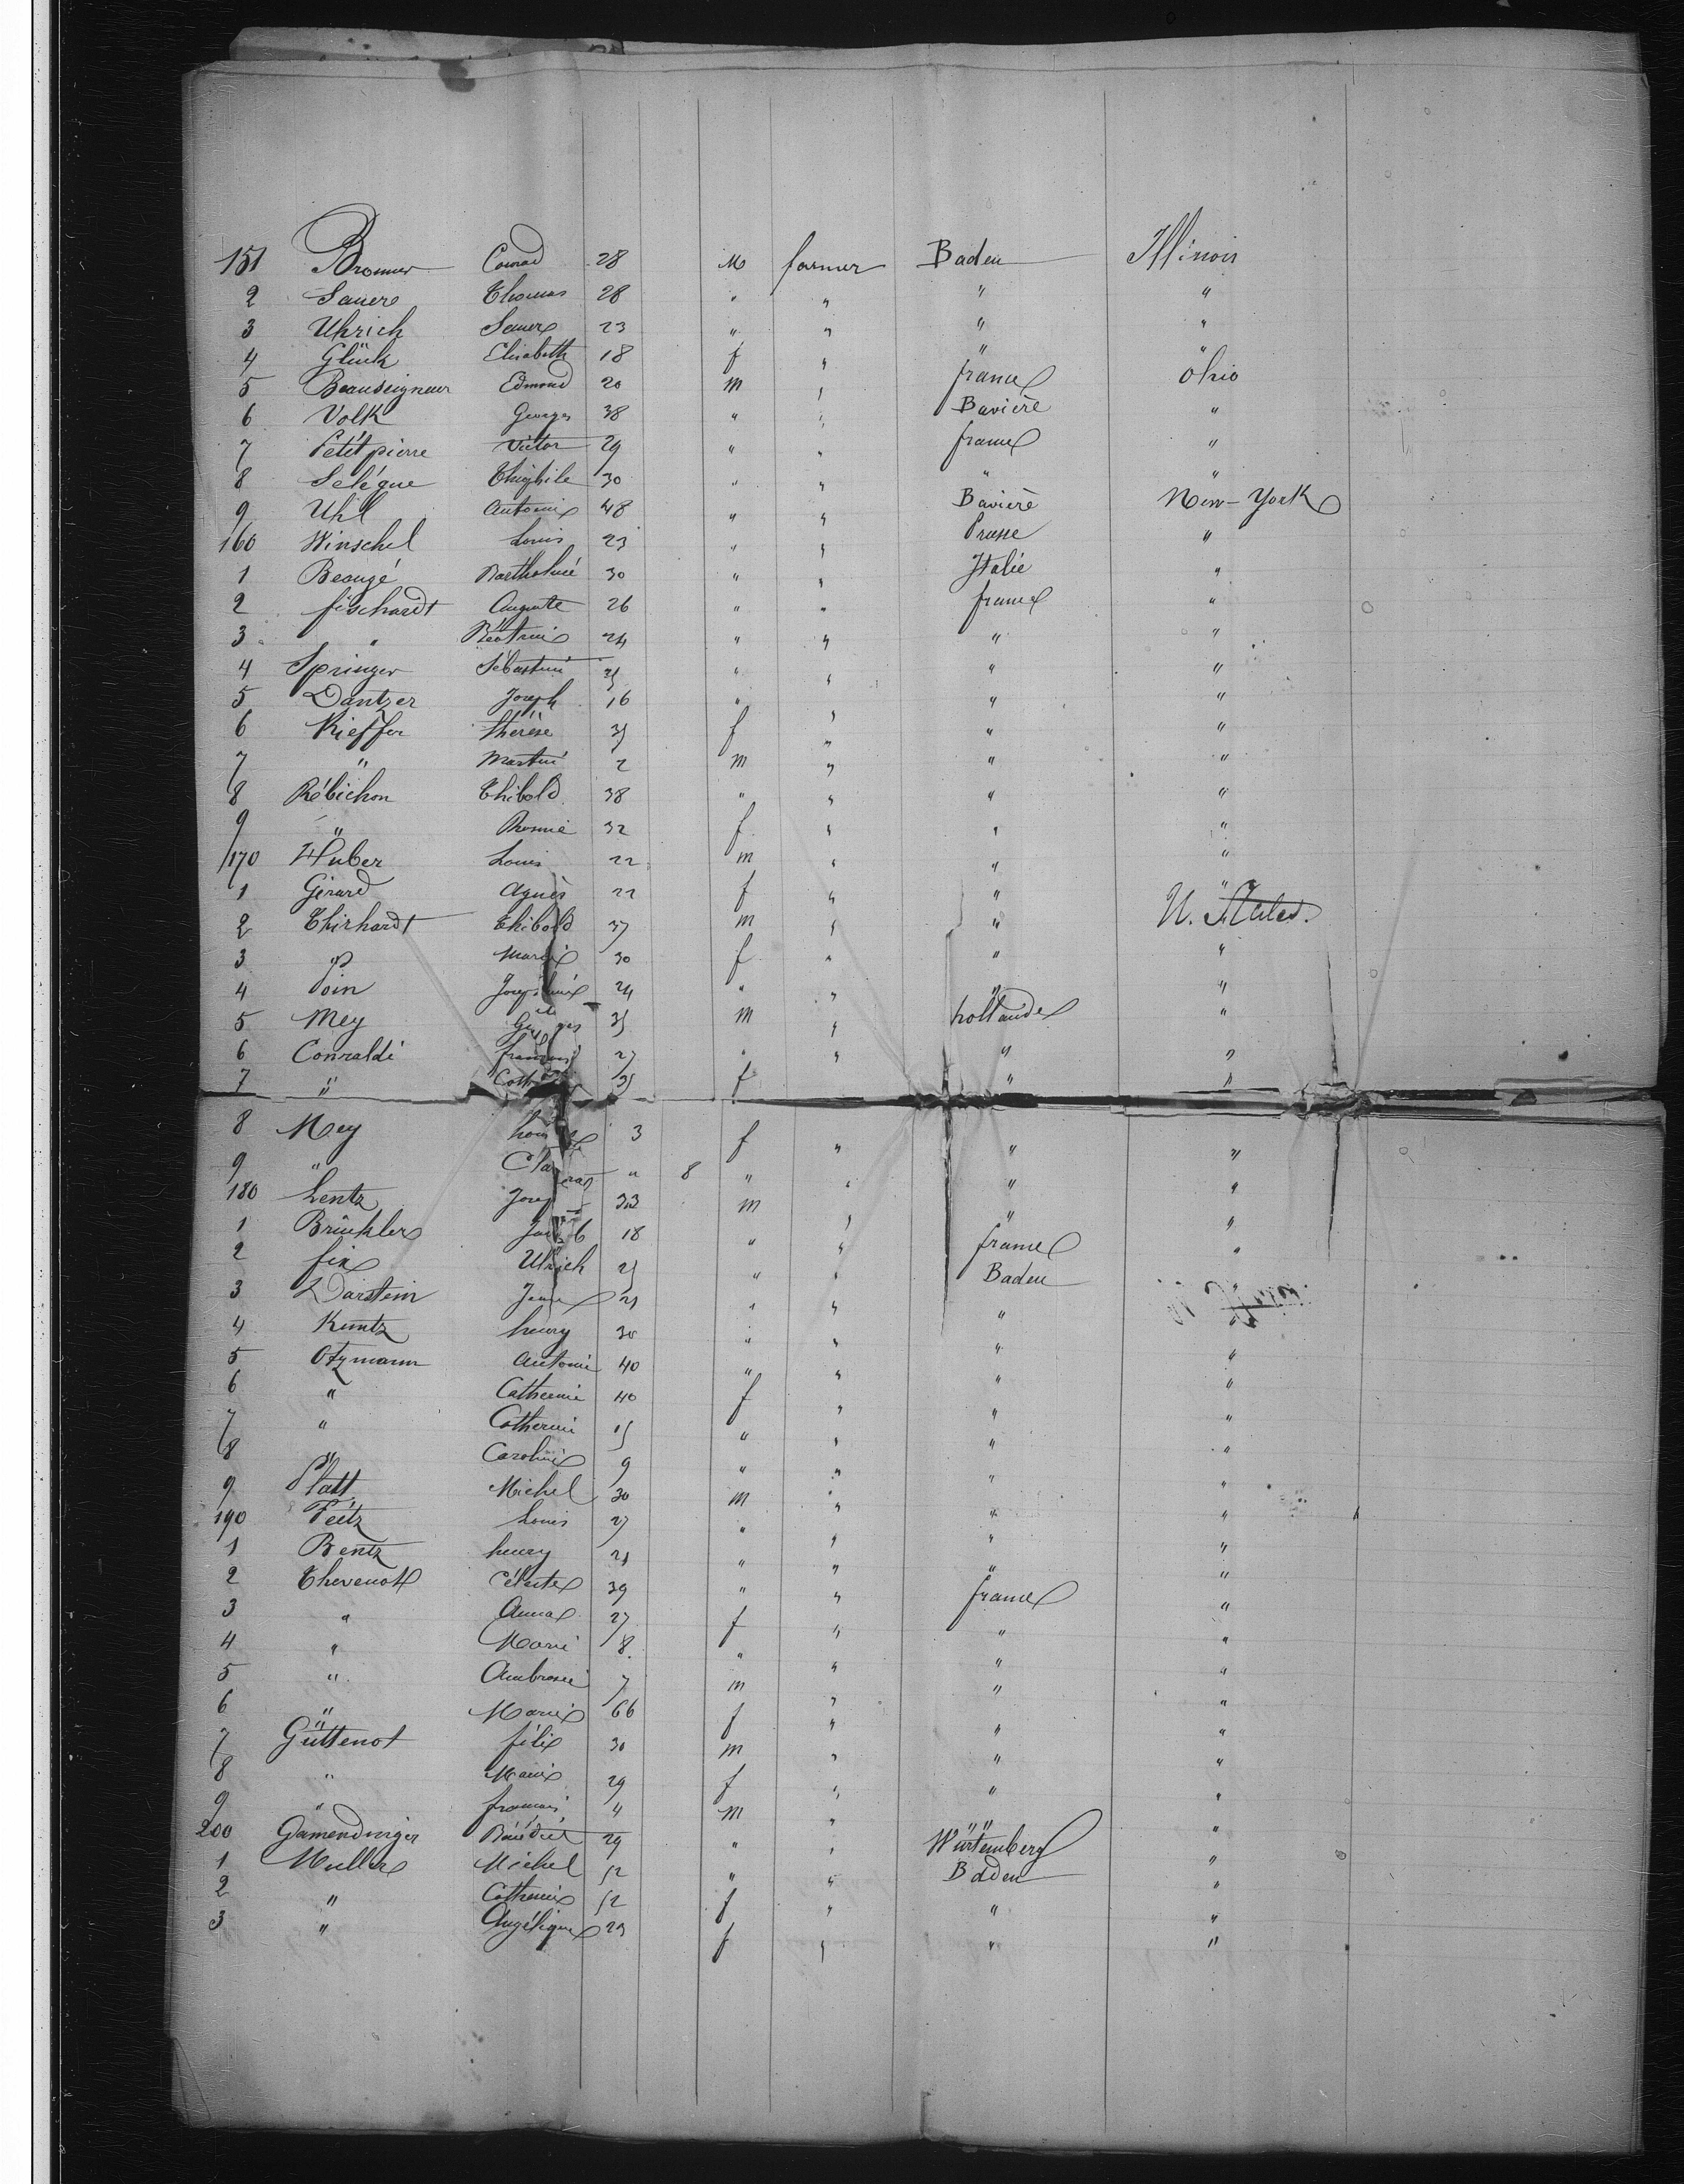 151 Bronner Conrad 28 M farmer Baden Illinois
2 Sauer Thomas 28 " " " "
3 Uhrich Sauer 23 " " " "
4 Glück Elisabeth 18 f " " "
5 Beauseigneur Edmond 20 m " france Ohio
6 Volk Georges 38 " " Bavière "
7 Petitpierre Victor 29 " " france "
8 Selégue 30 " " " "
9 Uhl Antoine 48 " " Bavière New-York
160 Winschel Louis 23 " " Prusse "
1 Beaugé Barthelmé 30 " " Italie "
2 fischardt Auguste 26 " " france "
3 " Béatrix 24 " " " "
4 Springer Sébastien 35 " " " "
5 Dantzer Joseph 16 " " " "
6 Kieffer thérèse 35 f " " "
7 " Martin 2 m " " "
8 Rébichon Thibold 38 " " " "
9 " Rosine 32 f " " "
170 Huber Louis 22 m " " "
1 Gérard Agnès 22 f " " "
2 Thirhardt Thibold 37 m " " U. States.
3 " Marie 30 f " " "
4 Poin Josephine 24 " " " "
5 Mey Georges 35 m " hollande "
6 Conraldi francois 27 " " " "
7 " 35 f " "
8 Mey Louise 3 f " " "
9 " " 8 " " " "
180 Lentz Joseph 33 m " " "
1 Brückler Jacob 18 " " france "
2 fix Ulrich 25 " " Baden "
3 Darstein 21 " " " "
4 Kuntz henry 30 " " " "
5 Otzmann Antoine 40 " " " "
6 " Catherine 40 f " " "
7 " Catherine 15 " " " "
8 " Caroline 9 " " " "
9 Platt Michel 30 m " " "
190 Feitz Louis 27 " " " "
1 Bentz henry 21 " " " "
2 Thevenot Céleste 39 " " france "
3 " Anna 27 f " " "
4 " Marie 8 " " " "
5 " Ambroise 7 m " " "
6 " Marie 66 f " " "
7 Güttenot félix 30 m " " "
8 " Marie 29 f " " "
9 " francois 4 m " " "
200 Gamendinger Bénédict 29 " " Würtemberg "
1 Muller Michel 52 " " Baden "
2 " Catherine 52 f " " "
3 " Angélique 23 f " " "